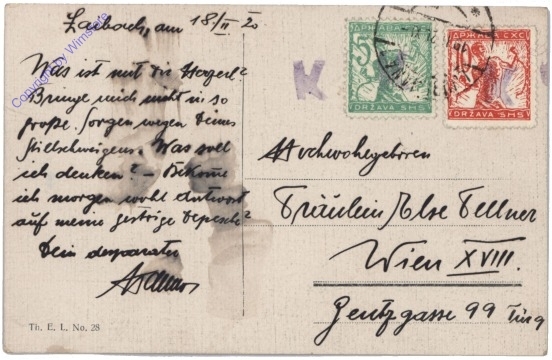 Laibach, am 18/II 20
Was ist mit dir Hagerl?
Bringe mich nicht in so
große Sorgen wegen Deines
Stillschweigens. Was soll
ich denken? – Bekomme
ich morgen wohl Antwort
auf meine gestrige Depesche?
Dein desparater
Th. E. L. No. 28
Copyright by Wimsdorf
K
ДРЖАВА СХС
5
DRŽAVA SMS
ДРЖАВА СХС
DRŽAVA SMS
Hochwohlgeboren
Fräulein Else Fellner
Wien XVIII.
Gentzgasse 99